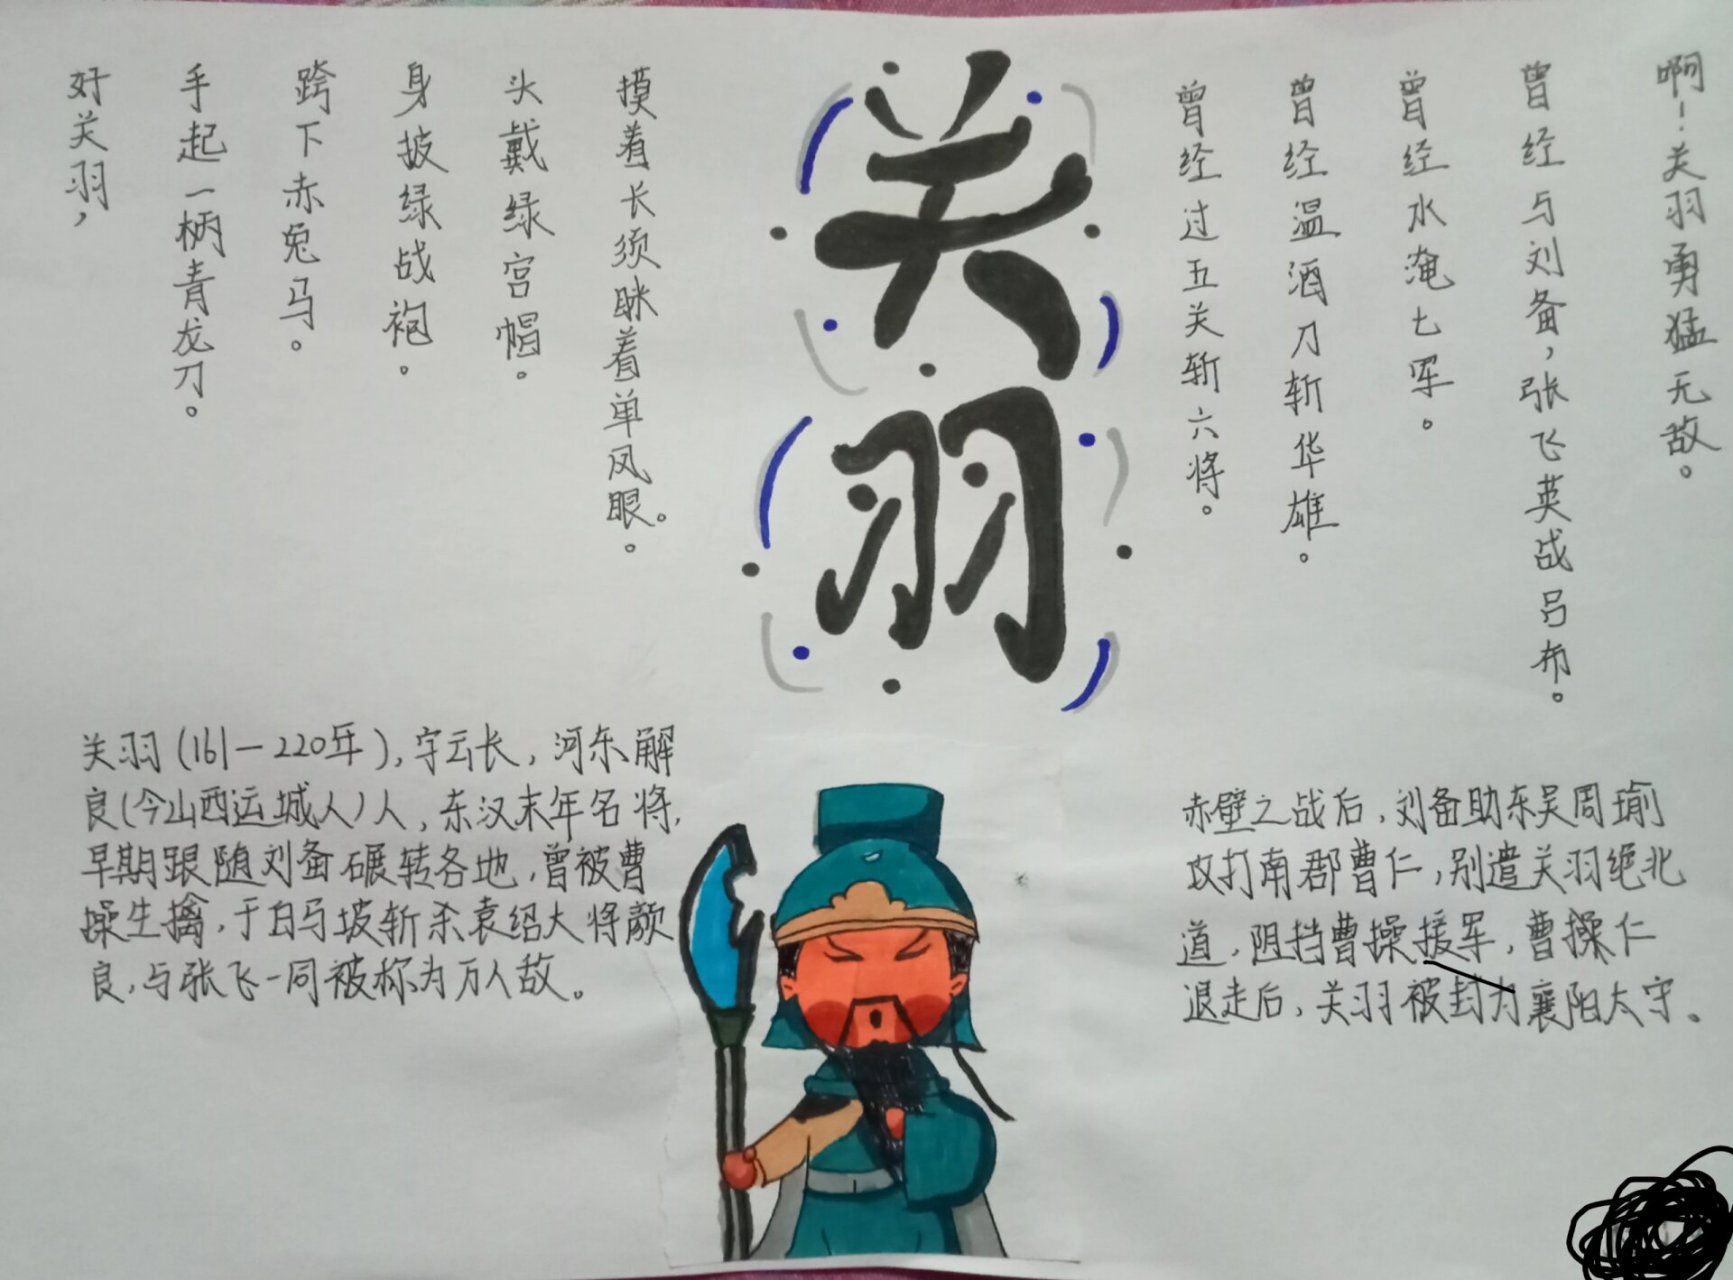 好关羽，
手起一柄青龙刀。
跨下赤兔马。
身披绿战袍。
头戴绿宫帽。
摸着长须眯着单凤眼。。
关羽
曾经过五关斩六将。
曾经温酒刀斩华雄。
曾经水淹七军。
曾经与刘备，张飞英战吕布。
啊!关羽勇猛无敌。
关羽(161—220年),字云长，河东解
良(今山西运城人)人，东汉末年名将,
早期跟随刘备碾转各地，曾被曹
操生擒，于白马坡斩杀袁绍大将颜
良，与张飞一同被称为万人敌。
赤壁之战后，刘备助东吴周瑜
攻打南郡曹仁，别遣关羽绝北
道，阻挡曹操援军，曹操仁
退走后，关羽被封为襄阳太守。